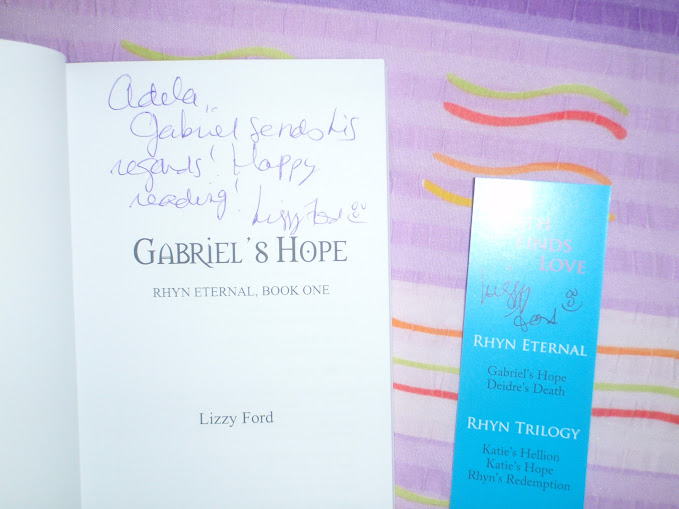 Adela,
Gabriel sends his
regards! Happy
reading!
Lizzy Ford
GABRIEL'S HOPE
RHYN ETERNAL, BOOK ONE
Lizzy Ford
LOVE
Lizzy
Ford
RHYN ETERNAL
Gabriel's Hope
Deidre's Death
RHYN TRILOGY
Katie's Hellion
Katie's Hope
Rhyn's Redemption